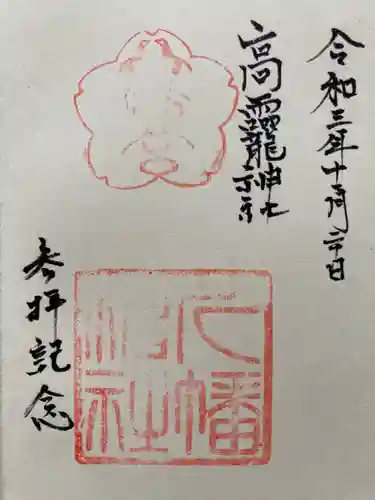 令和三年十月二十日
高龗神社
八幡
神社
参拝記念